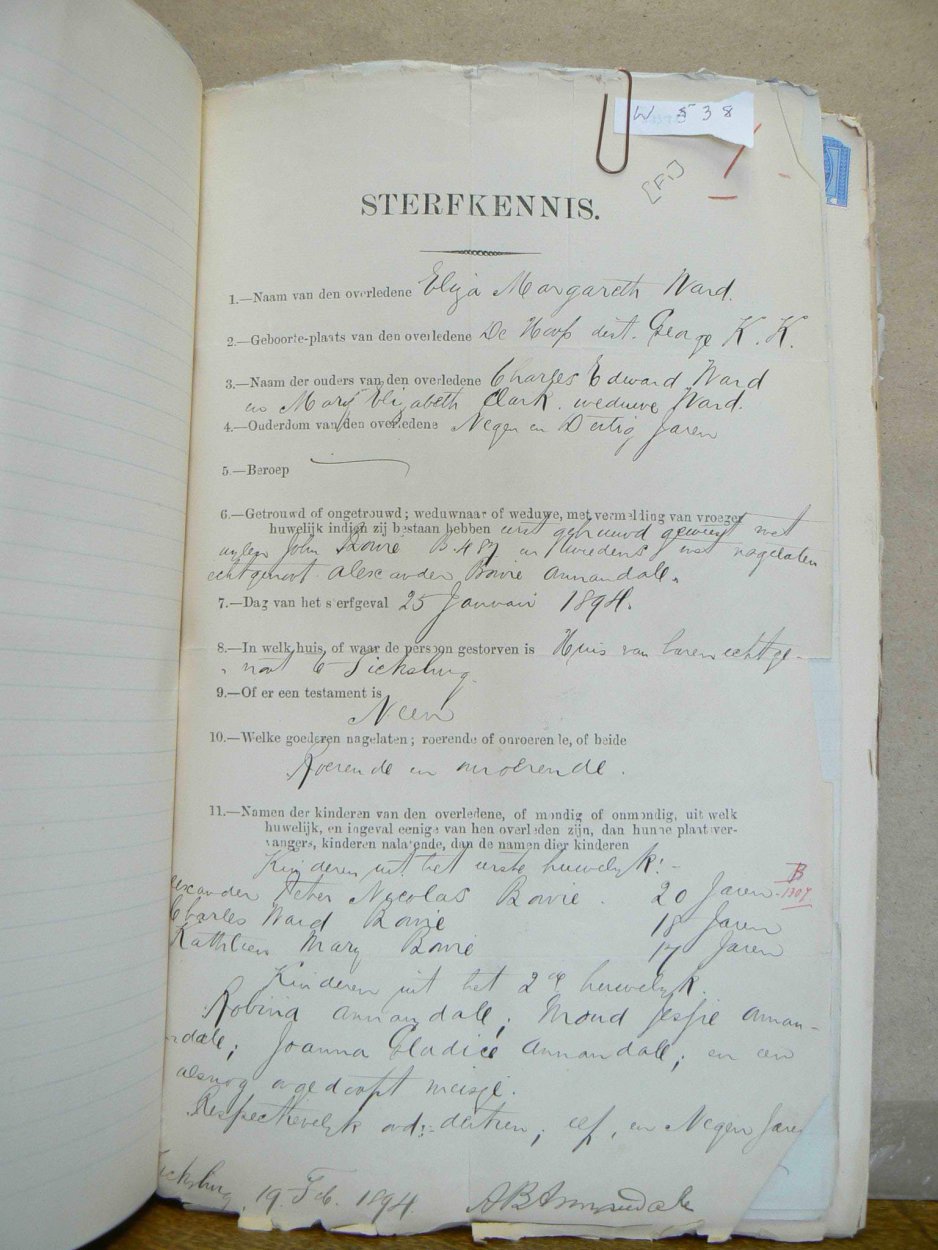 W 538
STERFKENNIS.
1.—Naam van den overledene Eliza Margareth Ward.
2.—Geboorte-plaats van den overledene De Hoop dist. George K. K.
3.—Naam der ouders van den overledene Charles Edward Ward
en Mary Elizabeth Clark. weduwe Ward.
4.—Ouderdom van den overledene Negen en Dertig Jaren
5.—Beroep
6.—Getrouwd of ongetrouwd; weduwnaar of weduwe, met vermelding van vroeger
huwelijk indien zij bestaan hebben eerst getrouwd geweest met
wylen John Bowie B 487 en tweedens met nagelaten
echtgenoot Alexander Bowie Annandale.
7.—Dag van het sterfgeval 25 Januari 1894.
8.—In welk huis, of waar de persoon gestorven is Huis van haren echtge-
noot te Ficksburg.
9.—Of er een testament is
Neen
10.—Welke goederen nagelaten; roerende of onroerende, of beide
Roerende en onroerende.
11.—Namen der kinderen van den overledene, of mondig of onmondig, uit welk
huwelijk, en ingeval eenige van hen overleden zijn, dan hunne plaatsver-
vangers, kinderen nalatende, dan de namen dier kinderen
Kinderen uit het eerste huwelyk:-
exander Peter Nicolas Bowie. 20 Jaren
Charles Ward Bowie 18 Jaren
Kathleen Mary Bowie 17 Jaren
Kinderen uit het 2de huwelyk.
Robina Annandale; Maud Jessie Annan-
dale; Joanna Gladice Annandale; en een
alsnog ongedoopt meisje.
Respectievelyk oud:- dertien; elf, en Negen Jaren
Ficksburg 19 Feb. 1894 AB Annandale